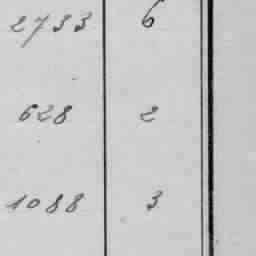 2733 6
628 2
1088 3